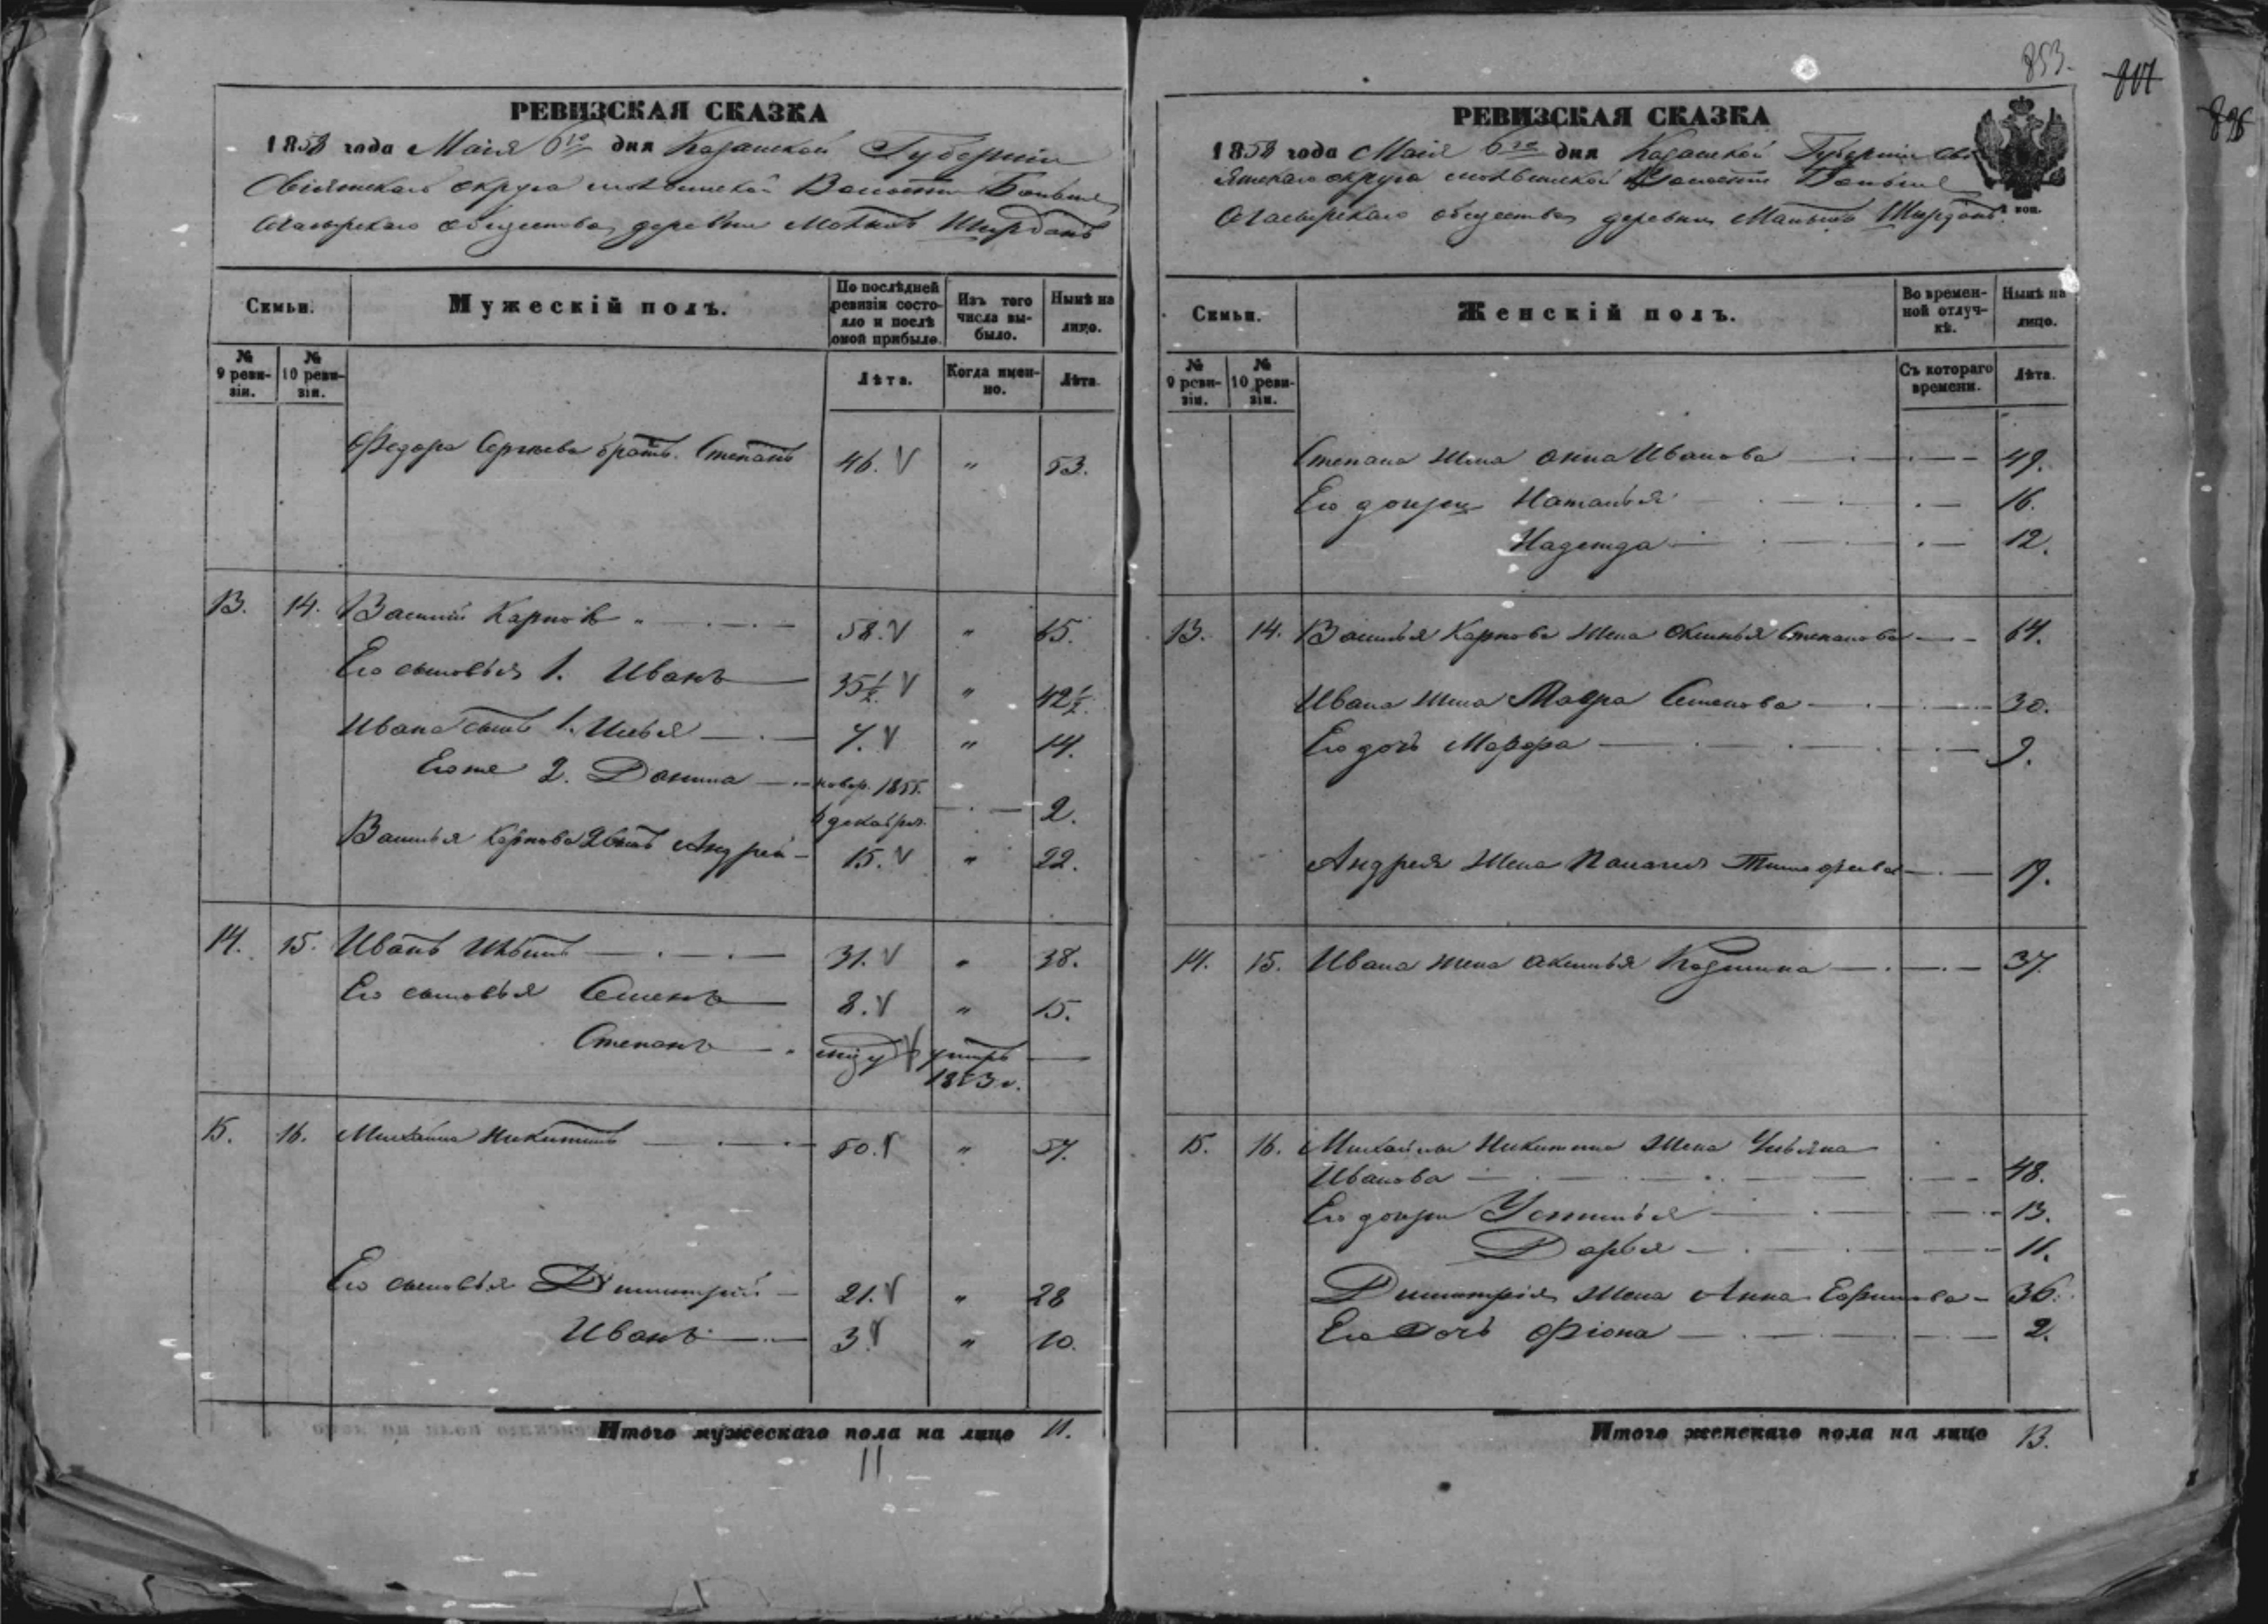 РЕВИЗСКАЯ СКАЗКА
1858 года Маія 6го дня Казанской Губерніи
Свіяжскаго округа Волости
общества деревни Ширданъ
Семьи.
Мужескій полъ.
По послѣдней ревизіи состояло и послѣ оной прибыло.
Изъ того числа выбыло.
Нынѣ на лицо.
№ 9 ревизіи.
№ 10 ревизіи.
Лѣта.
Когда именно.
Лѣта.
Федора Сергѣева братъ Степанъ 46. " 53.
13. 14. Василій Карповъ 58. " 65.
Его сыновья 1. Иванъ 35½ " 42½.
Ивана сынъ 1. Илья 7. " 14.
Его же 2. Данила новор. 1855. 6 декабря. 2.
Василья Карпова 2 сынъ Андрей 15. " 22.
14. 15. Иванъ 31. " 38.
Его сыновья Семенъ 8. " 15.
Степанъ умръ 1853 г.
15. 16. Михайла Никитинъ 50. " 57.
Его сыновья Димитрій 21. " 28
Иванъ 3. " 10.
Итого мужескаго пола на лицо 11.
11
853.
807
РЕВИЗСКАЯ СКАЗКА
1858 года Маія 6го дня Казанской Губерніи Сві
яжскаго округа Волости
общества деревни Ширданъ
коп.
Семьи.
Женскій полъ.
Во временной отлучкѣ.
Нынѣ на лицо.
№ 9 ревизіи.
№ 10 ревизіи.
Съ котораго времени.
Лѣта.
Степана жена Анна Иванова 49.
Его дочери Наталья 16.
Надежда 12.
13. 14. Василья Карпова жена Аксинья Степанова 64.
Ивана жена Мавра Семенова 30.
Его дочь Марфа 9.
Андрея жена Палагея Тимофеева 19.
14. 15. Ивана жена Аксинья Козмина 37.
15. 16. Михайлы Никитина жена Ульяна
Иванова 48.
Его дочери Устинья 13.
Дарья 11.
Димитрія жена Анна Ефимова 36.
Его дочь Фіона 2.
Итого женскаго пола на лицо 13.